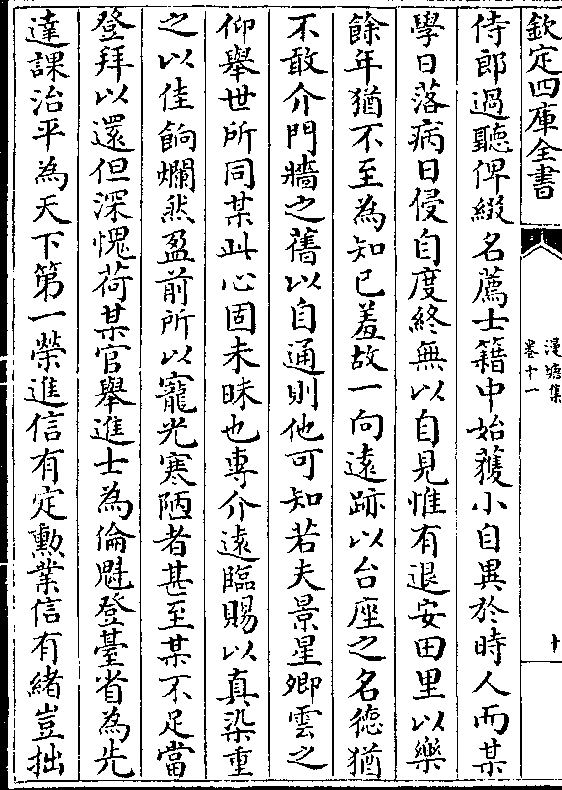 欽定四庫全書
漫塘集
卷十一
十
侍郎過聽俾綴名薦士籍中始獲小自異於時人而某
學日落病日侵自度終無以自見惟有退安田里以樂
餘年猶不至為知已羞故一向遠跡以台座之名德猶
不敢介門牆之舊以自通則他可知若夫景星卿雲之
仰舉世所同某此心固未昧也專介遠臨賜以真染重
之以佳餉爛然盈前所以寵光寒陋者甚至某不足當
登拜以還但深愧荷某官舉進士為倫魁登臺省為先
達課治平為天下第一榮進信有定勲業信有緒豈拙